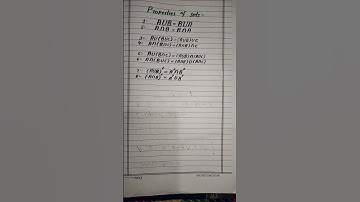 Properties of sets:-
1- AUB = BUA
2- A∩B = B∩A
3- AU(BUC) = (AUB)UC
4- A∩(B∩C) = (A∩B)∩C
5- AU(B∩C) = (AUB)∩(AUC)
6- A∩(BUC) = (A∩B)U(A∩C)
7- (AUB)' = A'∩B'
8- (A∩B)' = A'UB'